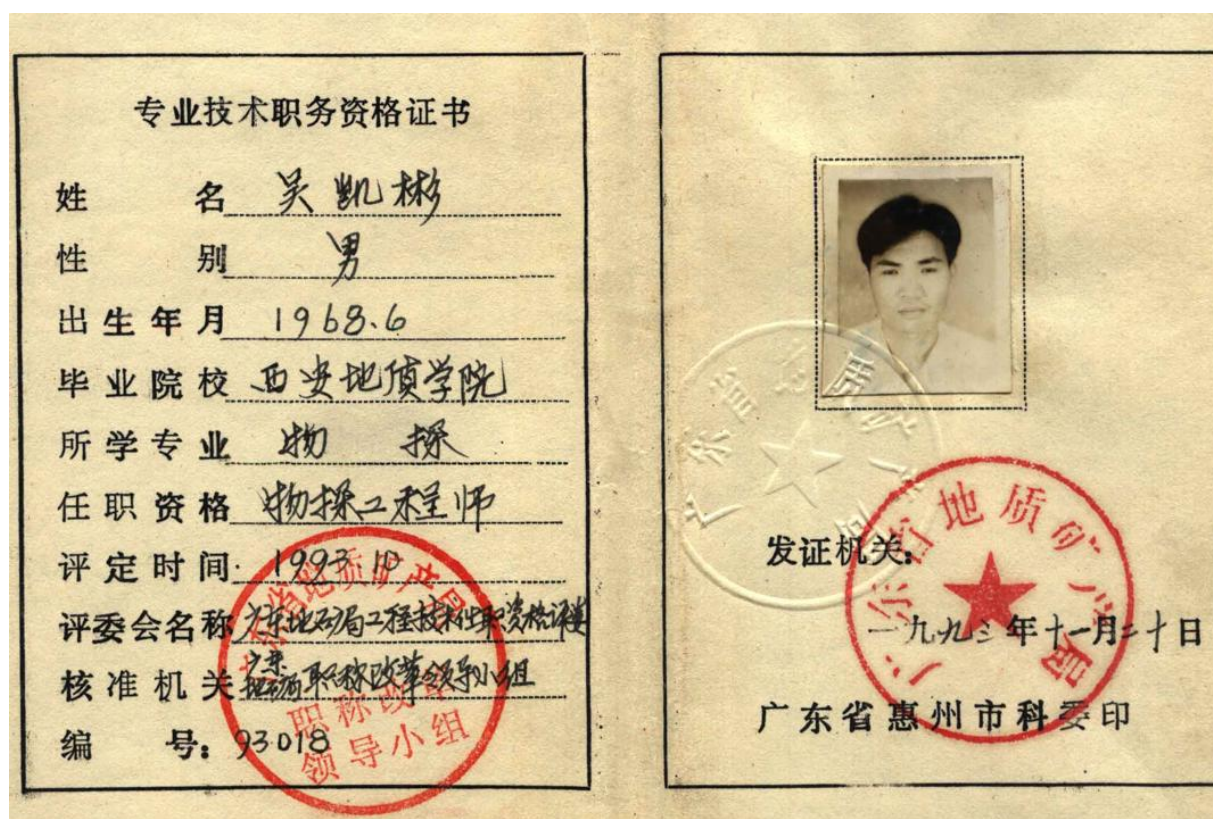 专业技术职务资格证书
姓名 吴凯彬
性别 男
出生年月 1968.6
毕业院校 西安地质学院
所学专业 物探
任职资格 物探工程师
评定时间: 1993.10
评委会名称 广东地矿局工程技术任职资格评委
核准机关 广东地矿局职称改革领导小组
编号: 93018
广东省地质矿产局
职称改革
领导小组
广东省地质矿产局
发证机关:
广东省地质矿产局
一九九三年十一月二十日
广东省惠州市科委印